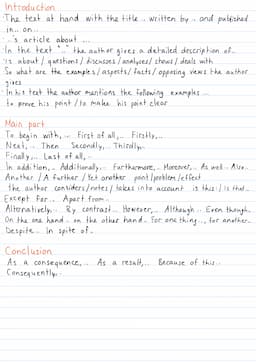 Introduction
The text at hand with the title .. written by .. and published
in... on...
..'s article about ...
In the text ".." the author gives a detailed description of...
is about / questions / discusses / analyses / shows / deals with ...
So what are the examples / aspects / facts / opposing views the author
gives
In his text the author mentions the following examples ...
to prove his point / to make his point clear
Main part
To begin with, ... First of all,... Firstly,...
Next, ... Then Secondly,.. Thirdly,..
Finally,... Last of all, ..
In addition,... Additionally... Furthermore,... Moreover,.. As well.. Also..
Another / A further / Yet another point / problem / effect
the author considers / notes / takes into account is this: / is that...
Except for... Apart from..
Alternatively,.. By contrast.. However,... Although... Even though..
On the one hand .. on the other hand.. For one thing.., for another..
Despite... In spite of..
Conclusion
As a consequence,... As a result,.. Because of this...
Consequently,..